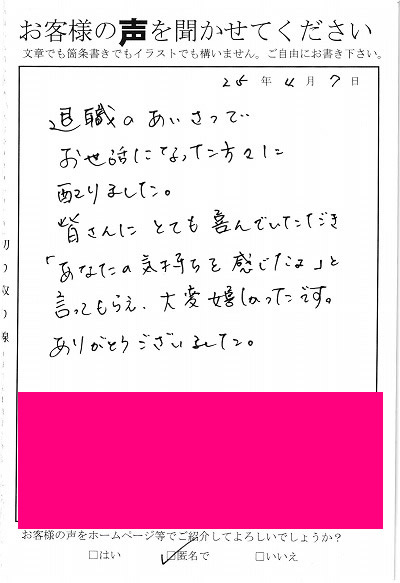 お客様の声を聞かせてください
文章でも箇条書きでもイラストでも構いません。ご自由にお書き下さい。
25年4月7日
退職のあいさつで
お世話になった方々に
配りました。
皆さんに とても喜んでいただき
「あなたの気持ちを感じたよ」と
言ってもらえ、大変嬉しかったです。
ありがとうございました。
切り取り線
お客様の声をホームページ等でご紹介してよろしいでしょうか?
□はい □匿名で □いいえ